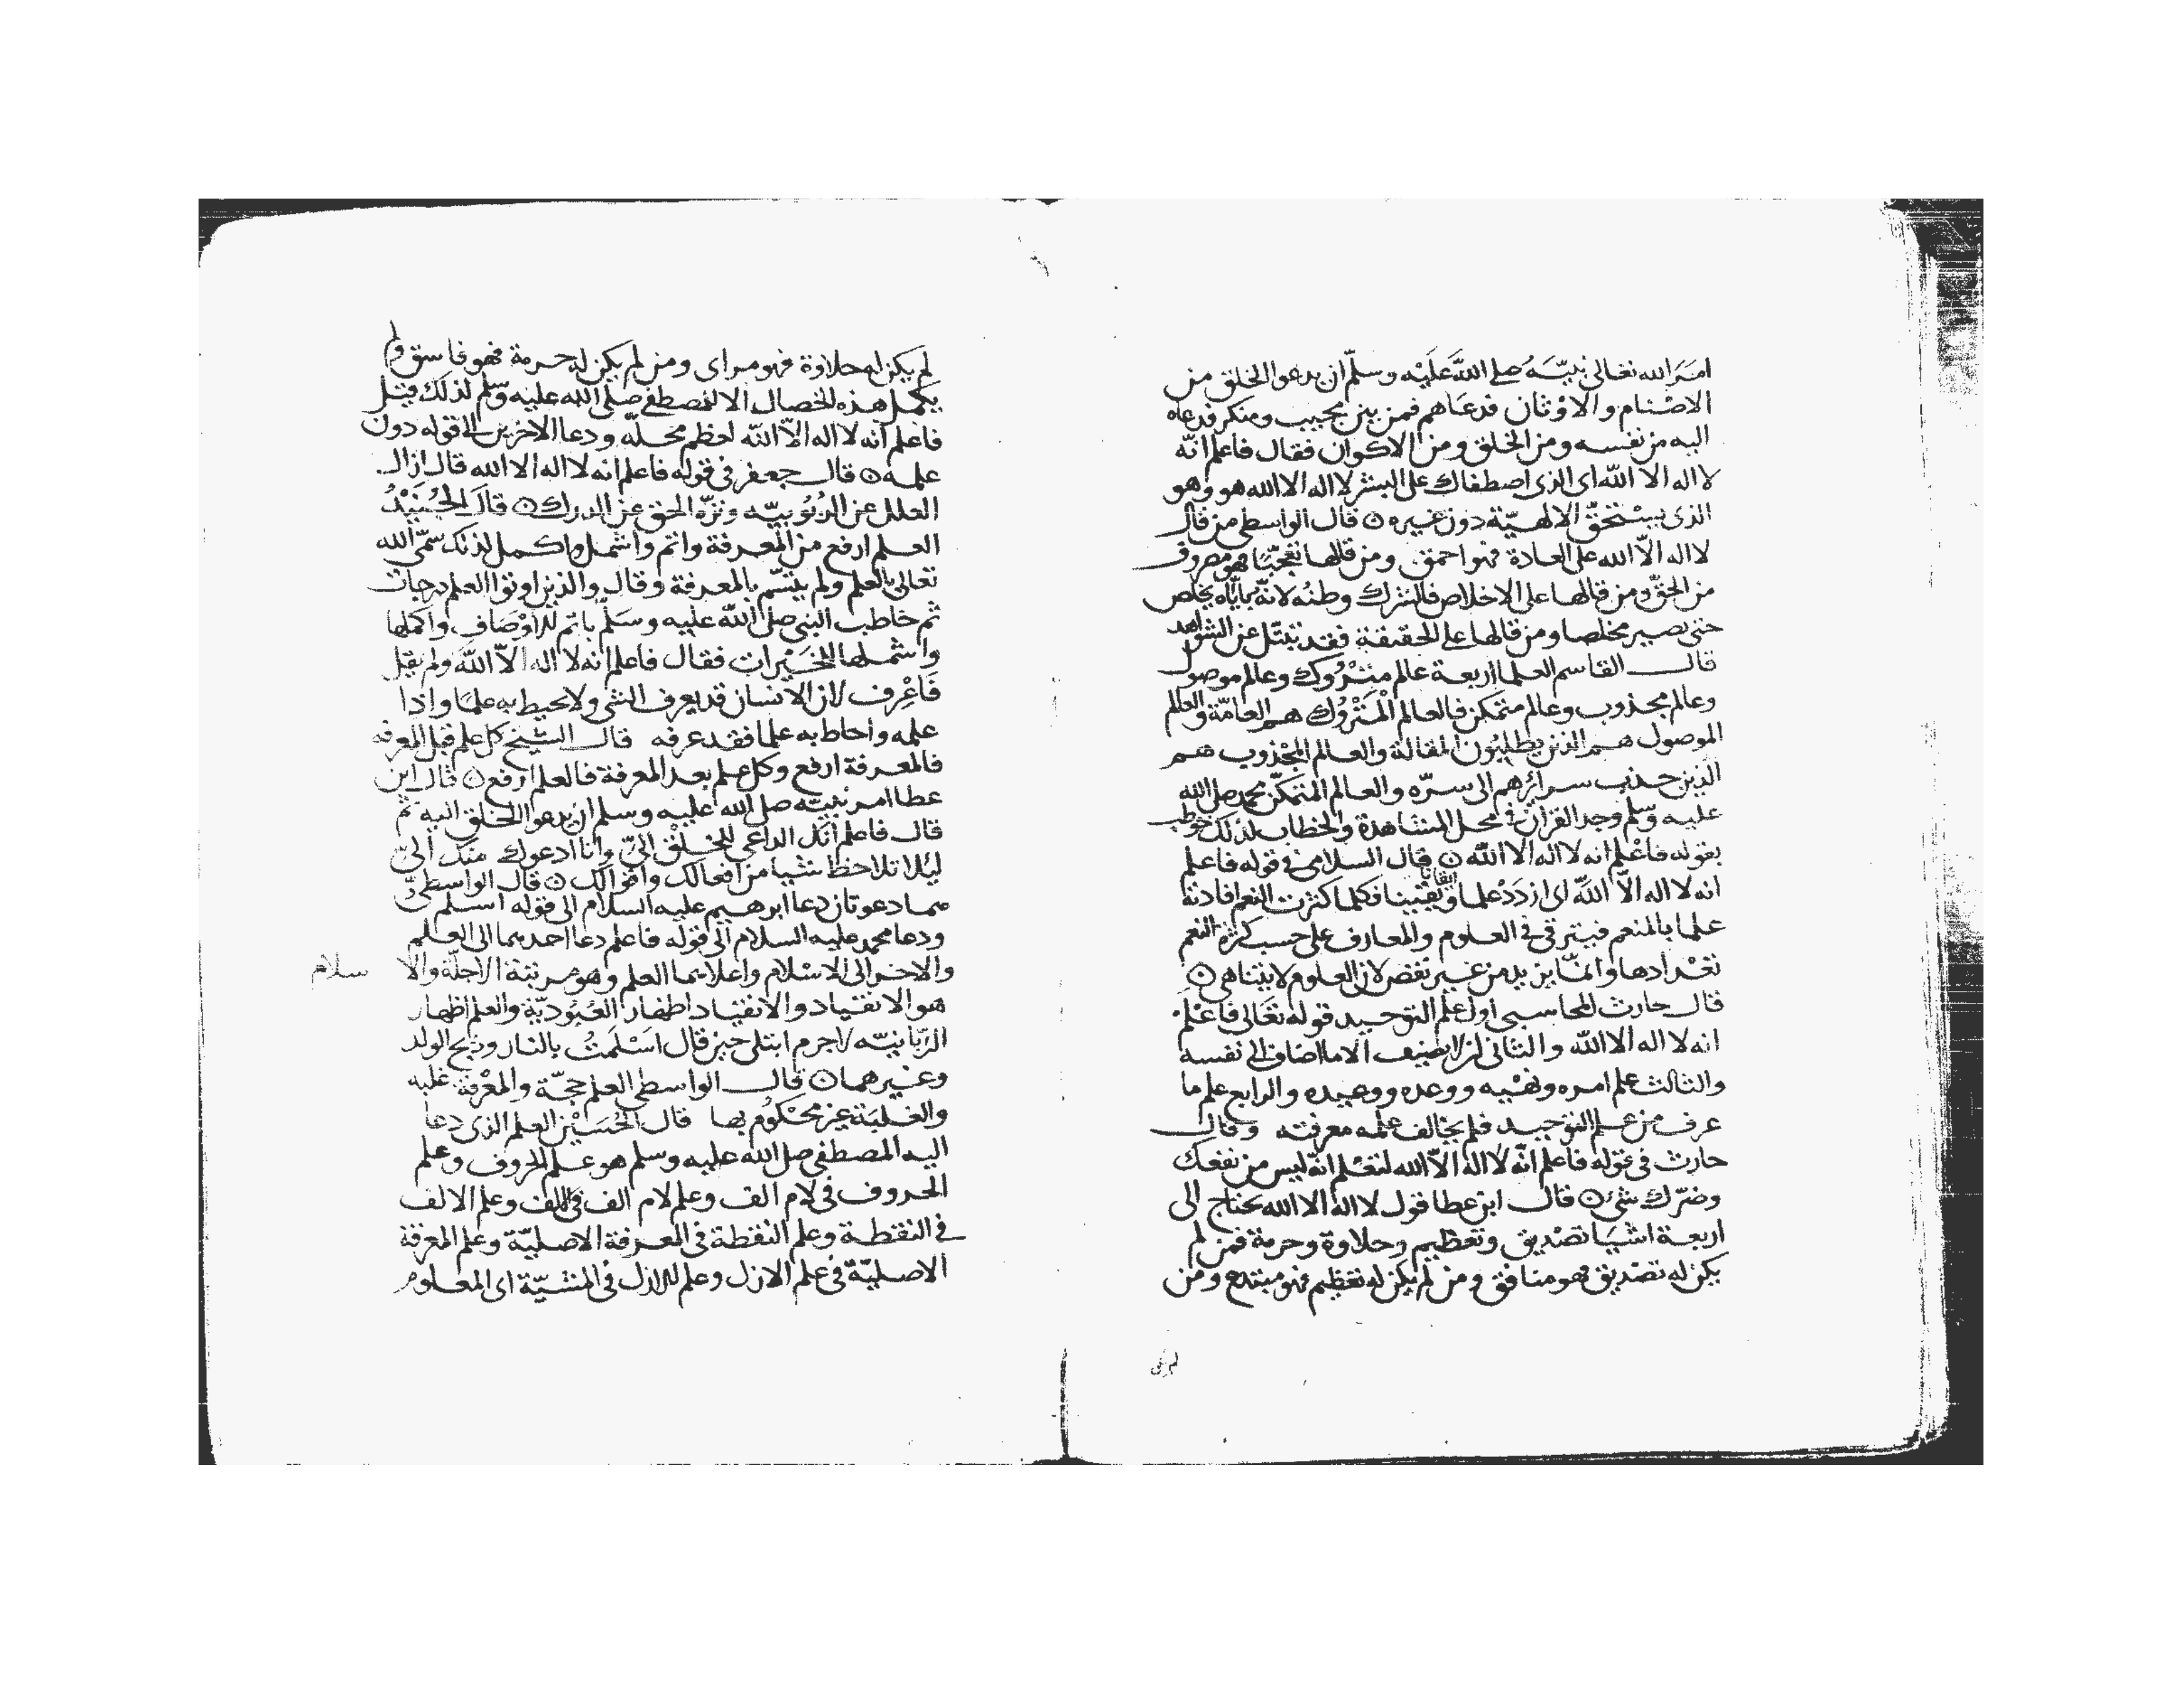 امَرَ الله تعالى نبيّه صلى الله عليه وسلّم ان يدعوا الخلق من
الاصنام والاوثان فدعاهم فمن بين مجيب ومنكر فدعاه
اليه من نفسه ومن الخلق ومن الاكوان فقال فاعلم انّه
لا اله الا الله اى الذى اصطفاك على البشر لا اله الا الله هو وهو
الذى يستحقّ الالهيّة دون غيره ۞ قال الواسطى من قال
لا اله الّا الله على العادة فهو احمق ومن قالها تعجّبًا فهو مصروف
من الحقّ ومن قالها على الاخلاص فالشرك وطنُه لانّه باياه يخلص
حتى يصير مخلصا ومن قالها على الحقيقة فقد تبتّل عن الشواهد
قال القاسم العلما اربعة عالم متْرُوك وعالم موصول
وعالم مجذوب وعالم متمكن فالعالم المتْرُوك هم العامّة والعالم
الموصول هم الذين يطلبُون المقالة والعالم المجْذوب هم
الذين جذب سرائرهم الى سرّه والعالم المتمكّن محمد صلى الله
عليه وسّلم وجد القران فى محل المشاهدة والخطاب لذلك خوطب
بقوله فاعْلم انه لا اله الا الله ۞ قال السلامى فى قوله فاعلم
انه لا اله الّا الله اى ازدَدْ علما ويقينا فكلما كثرت النعم افادته
علما بالمنعم فيترقى فى العلوم والمعارف على حسب كثرة النعم
تعْدادها وانمّا يزيد من غير نقص لان العلوم لا يتناهى ۞
قال حارث المحاسبى اول علم التوحيد قوله تعَالى فاعْلم
انه لا اله الا الله والثانى ان لا يضيف الا ما اضاف الى نفسه
والثالث علم امره ونهْيه ووعده ووعيده والرابع علم ما
عرف من علم التوحيد فلم يخالف علمه معرفته وقال
حارث فى قوله فاعلم انّه لا اله الّا الله لتعْلم انّه ليس من نفعك
وضرّك شئ ۞ قال ابن عطا قول لا اله الا الله يحتاج الى
اربعة اشيَا تصْديق وتعظيم وحلاوة وحرمة فمن لم
يكن له تصْديق فهو منافق ومن لم يكن له تعظيم فهو مبتدع ومن
لم يكن له حلاوة فهو مراى ومن لم يكن له حرمة فهو فاسق ولم
يكمل هذه الخصال الا للمصطفى صلى الله عليه وسّلم لذلك قيل
فاعلم انه لا اله الّا الله لعظم محلّه ودعا الاخرين الى قوله دون
علمه ۞ قال جعفر فى قوله فاعلم انه لا اله الا الله قال ازال
العلل عن الرُبُوبيّه ونزّه الحق عن الدرك ۞ قالَ الجُنَيْدُ
العلم ارفع من المعرفة واتم واشمل واكمل لذلك سمّى الله
تعالى بالعلم ولم يتسّم بالمعرفة وقال والذين اوتوا العلم درجات
ثم خاطب النبى صلى الله عليه وسَلّم باتم الاوْصَاف واكملها
واشملها للخيرات فقال فاعلم انه لا اله الّا الله ولم يقل
فَاعْرِف لان الانسان قد يعرف الشى ولا يحيط به علمًا واذا
علمه واحاط به علما فقد عرفه قال الشيخ كل علم قبل المعرفه
فالمعرفة ارفع وكل علم بعد المعرفة فالعلم ارفع ۞ قال ابن
عطا امر نبيّه صلى الله عليه وسلم ان يدعو الخلق اليه ثم
قال فاعلم انك الداعى للخلْق الىّ وانا ادعوك منك الىّ
ليُلا تلاحظ شيا من افعالك واقوالك ۞ قال الواسطى
هما دعوتان دعا ابرهيم عليه السلام الى قوله اسلم
ودعا محمد عليه السلام الى قوله فاعلم دعا احدهما الى العلم
والاخر الى الاسْلام واعلاهما العلم وهو مرتبة الاجلّة والا سلام
هو الانقياد والانقياد اظهار العُبُوديّة والعلم اظهار
الرّبانيّه لا جرم ابتلى حين قال اسْلَمتُ بالنار وذبح الولد
وغيرهما ۞ قال الواسطى العلم حجّة والمعْرفة غلبه
والغلبَة غير محْكُوم بها قال الحُسَيْن العلم الذى دعا
اليه المصطفى صلى الله عليه وسلم هو علم الحروف وعلم
الحروف فى لام الف وعلم لام الف فى الالف وعلم الالف
فى النقطة وعلم النقطة فى المعرفة الاصليّة وعلم المعرفة
الاصليّة فى علم الازل وعلم الازل فى المشيّة اى المعلوم